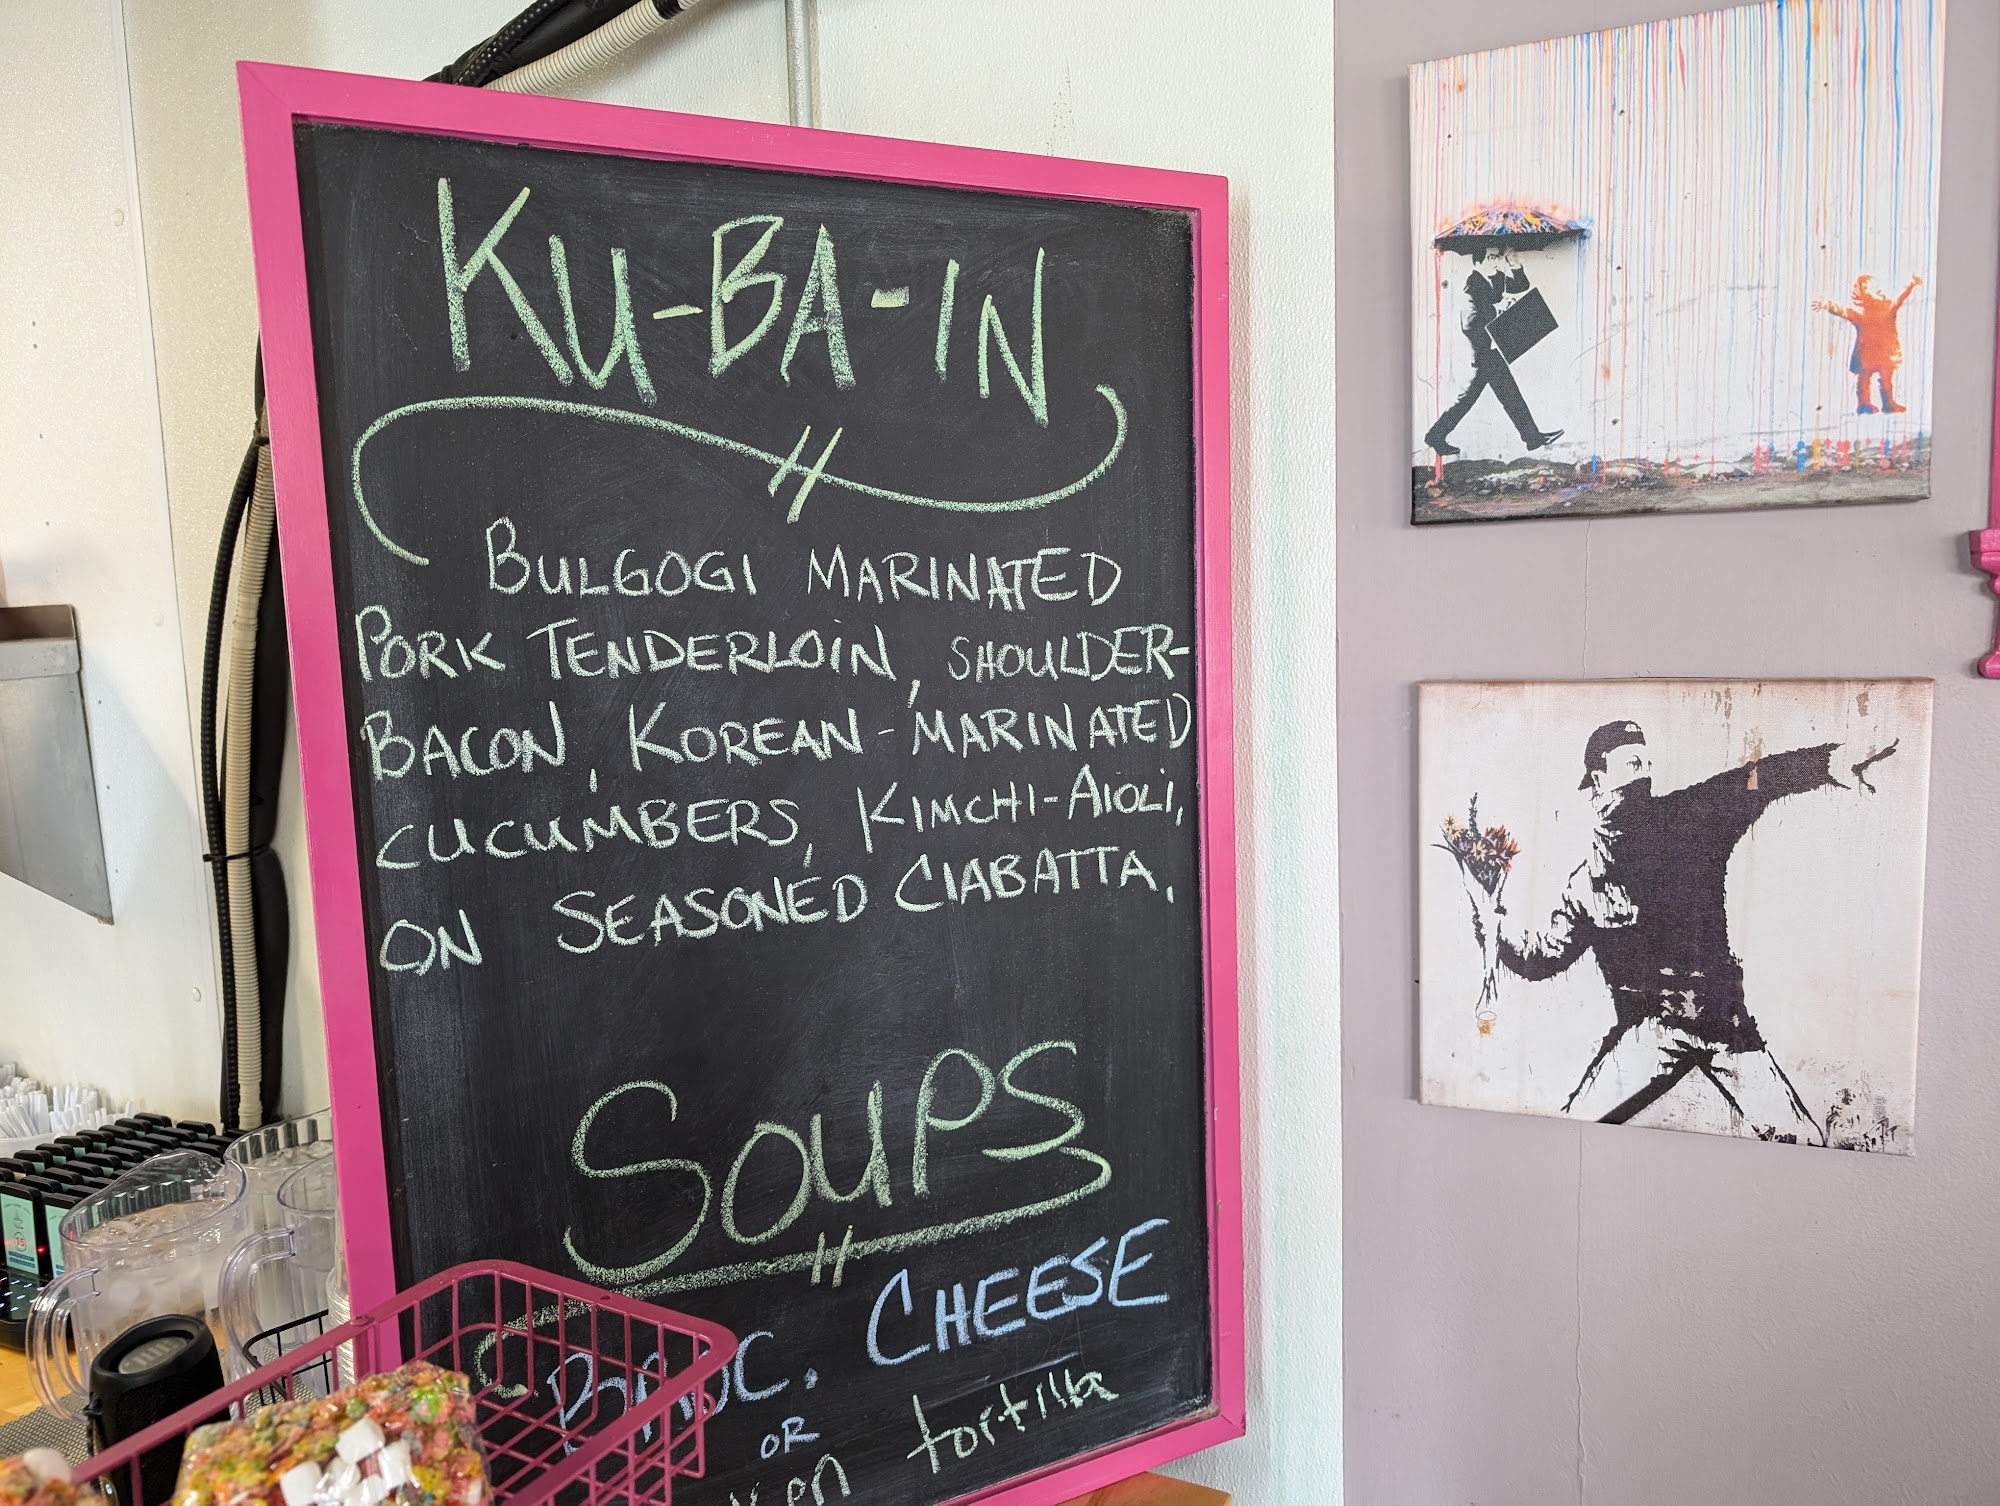 KU-BA-IN
BULGOGI MARINATED
PORK TENDERLOIN, SHOULDER-
BACON, KOREAN-MARINATED
CUCUMBERS, KIMCHI-AIOLI,
ON SEASONED CIABATTA.
SOUPS
CHEESE
OR
tortilla
JBL